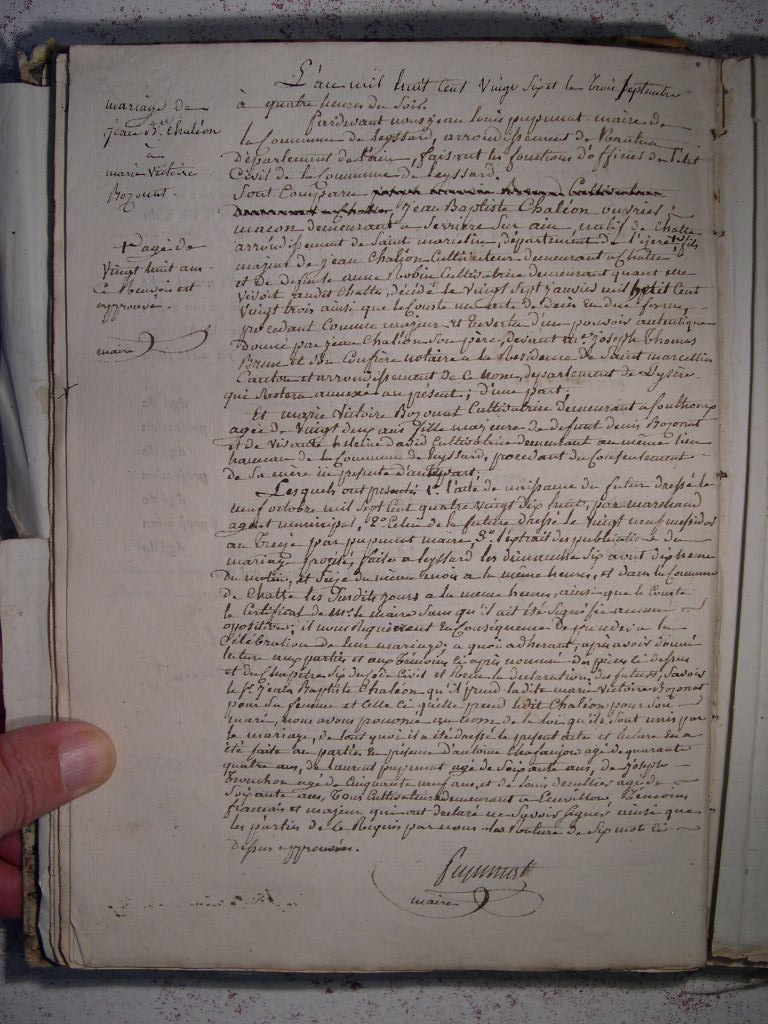 mariage de
jean B.te Chaléon
à
marie Victoire
Bozonat.
+ agé de
Vingt huit ans
Le Renvoi est
approuvé.
maire
L'an mil huit cent Vingt Sept et le trois Septembre
à quatre heures du Soir.
Pardevant nous jean louis pupunat maire de
la Commune de Leyssard, arrondissement de Nantua
Département de l'ain, faisant les fonctions d'officier de l'état
Civil de la Commune de Leyssard.
Sont Comparu
Jean Baptiste Chaléon ouvrier
maçon demeurant a Serrière Sur ain, natif de Chatte
arrondissement de Saint marcelin, département de l'izere, + fils
majeur de jean Chaléon Cultivateur demeurant a Chatte
et De defunte anne Robin Cultivatrice demeurant quant elle
vivoit audit Chatte, décédé le Vingt Sept janvier mil huit Cent
Vingt trois ainsi que le Conste un acte de décès en due forme,
procedant Comme majeur et En vertu d'un pouvoir autentique
Donné par jean Chaléon Son père, devant m.e Joseph Thomas
Brun et Son Confrère notaire a la Residence de Saint marcellin
Canton et arrondissement de Ce Nom, departement de l'ysère
qui Restera annexé au présent; d'une part;
Et marie Victoire Bozonat Cultivatrice demeurant a
agée de Vingt deux ans fille majeure de defunt denis Bozonat
et de Vivante heleine david Cultivatrice demeurant au même lieu
hameau de la Commune de Leyssard, procedant du Consentement
de Sa mère ici presente d'autre part;
Lesquels ont presenté 1.o l'acte de naissance du futur dressé le
neuf octobre mil Sept Cent quatre Vingt dix huit, par marchand
agent municipal, 2.o Celui de la future dressé le Vingt neuf messidor
an Treize par pupunat maire, 3.o l'extrait des publications de
mariage projeté, faite a Leyssard les dimanche Six aout dix heure
du matin, et du même mois a la même heure, et dans la Commune
de Chatte les Susdits jours a la même heure, ainsi que le Conste
le Certificat de M.r le maire Sans qu'il ait été Signifié aucune
opposition; il nous Requierent en Consequence De proceder a la
Célébration de leur mariage; a quoi adherant, après avoir donné
lecture aux parties et aux Témoins Ci après nommé des pièces Ci dessus
et du Chapitre Six du Code Civil et Recu la declaration des futurs, Savoir
le S.r Jean Baptiste Chaléon qu'il prend la dite marie Victoire Bozonat
pour Sa femme et Celle Ci qu'elle prend ledit Chaléon pour Son
mari, nous avons prononcé au nom de la loi qu'ils Sont unis par
le mariage, de tout quoi il a été dressé le present acte et lecture En a
été faite au parties En présence d'antoine agé de quarante
quatre ans, de laurent pupunat agé de Soixante ans, de Joseph
Trouchon agé de Cinquante neuf ans, et de louis agé de
Soixante ans, tous Cultivateurs demeurant a Témoins
francais et majeur qui ont declaré ne Savoir Signer ainsi que
les parties de Ce Réquis par nous. la Rature de Sept mots Ci
Dessus approuvée.
Pupunat
maire